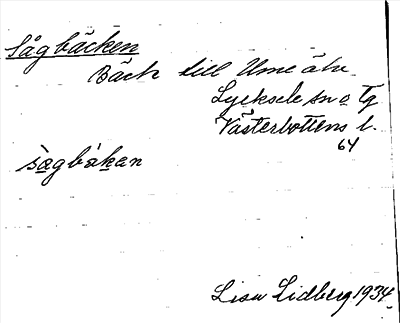 Sågbäcken
Bäck till Ume älv
Lycksele sn o tg
Västerbottens l.
64
sågbäkan
Lisa Lidberg 1934.